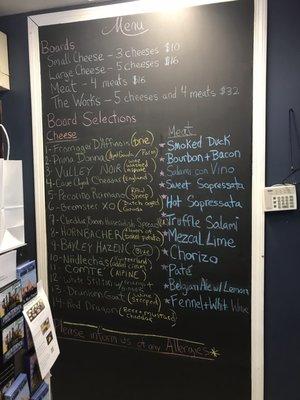 Menu
Boards
Small Cheese - 3 cheeses $10
Large Cheese - 5 cheeses $16
Meat - 4 meats $16
The Works - 5 cheeses and 4 meats $32
Board Selections
Cheese
1- Fromager D'Affinois (Brie)
2- Prima Donna
3- VULLEY NOIR
4- Cave Aged Cheddar (England)
5- Pecorino Romano (Raw Sheep)
6- Bremster XO
7- Cheddar Bacon Horseradish Spread
8- HORNBACHER
9- BAYLEY HAZEN (Blue)
10- Nüdlechäs
11- COMTÉ (ALPINE)
12- White Stilton
13- Drunken Goat
14- Red Dragon (Beer + mustard cheddar)
Meat
* Smoked Duck
* Bourbon + Bacon
* Salami con Vino
* Sweet Sopressata
* Hot Sopressata
* Truffle Salami
* Mezcal Lime
* Chorizo
* Paté
* Belgian Ale w/ Lemon
* Fennel + Whit Wine
Please inform us of any Allergies*